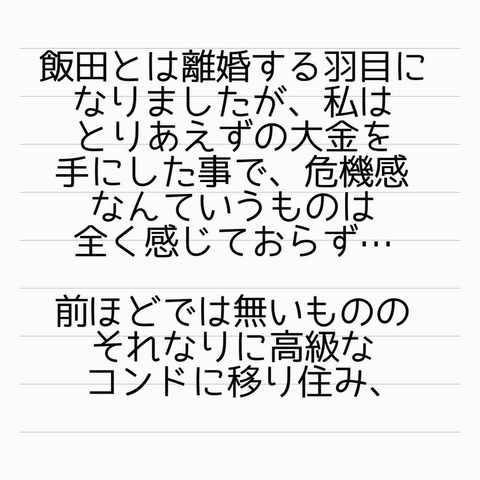 飯田とは離婚する羽目に
なりましたが、私は
とりあえずの大金を
手にした事で、危機感
なんていうものは
全く感じておらず…
前ほどでは無いものの
それなりに高級な
コンドに移り住み、